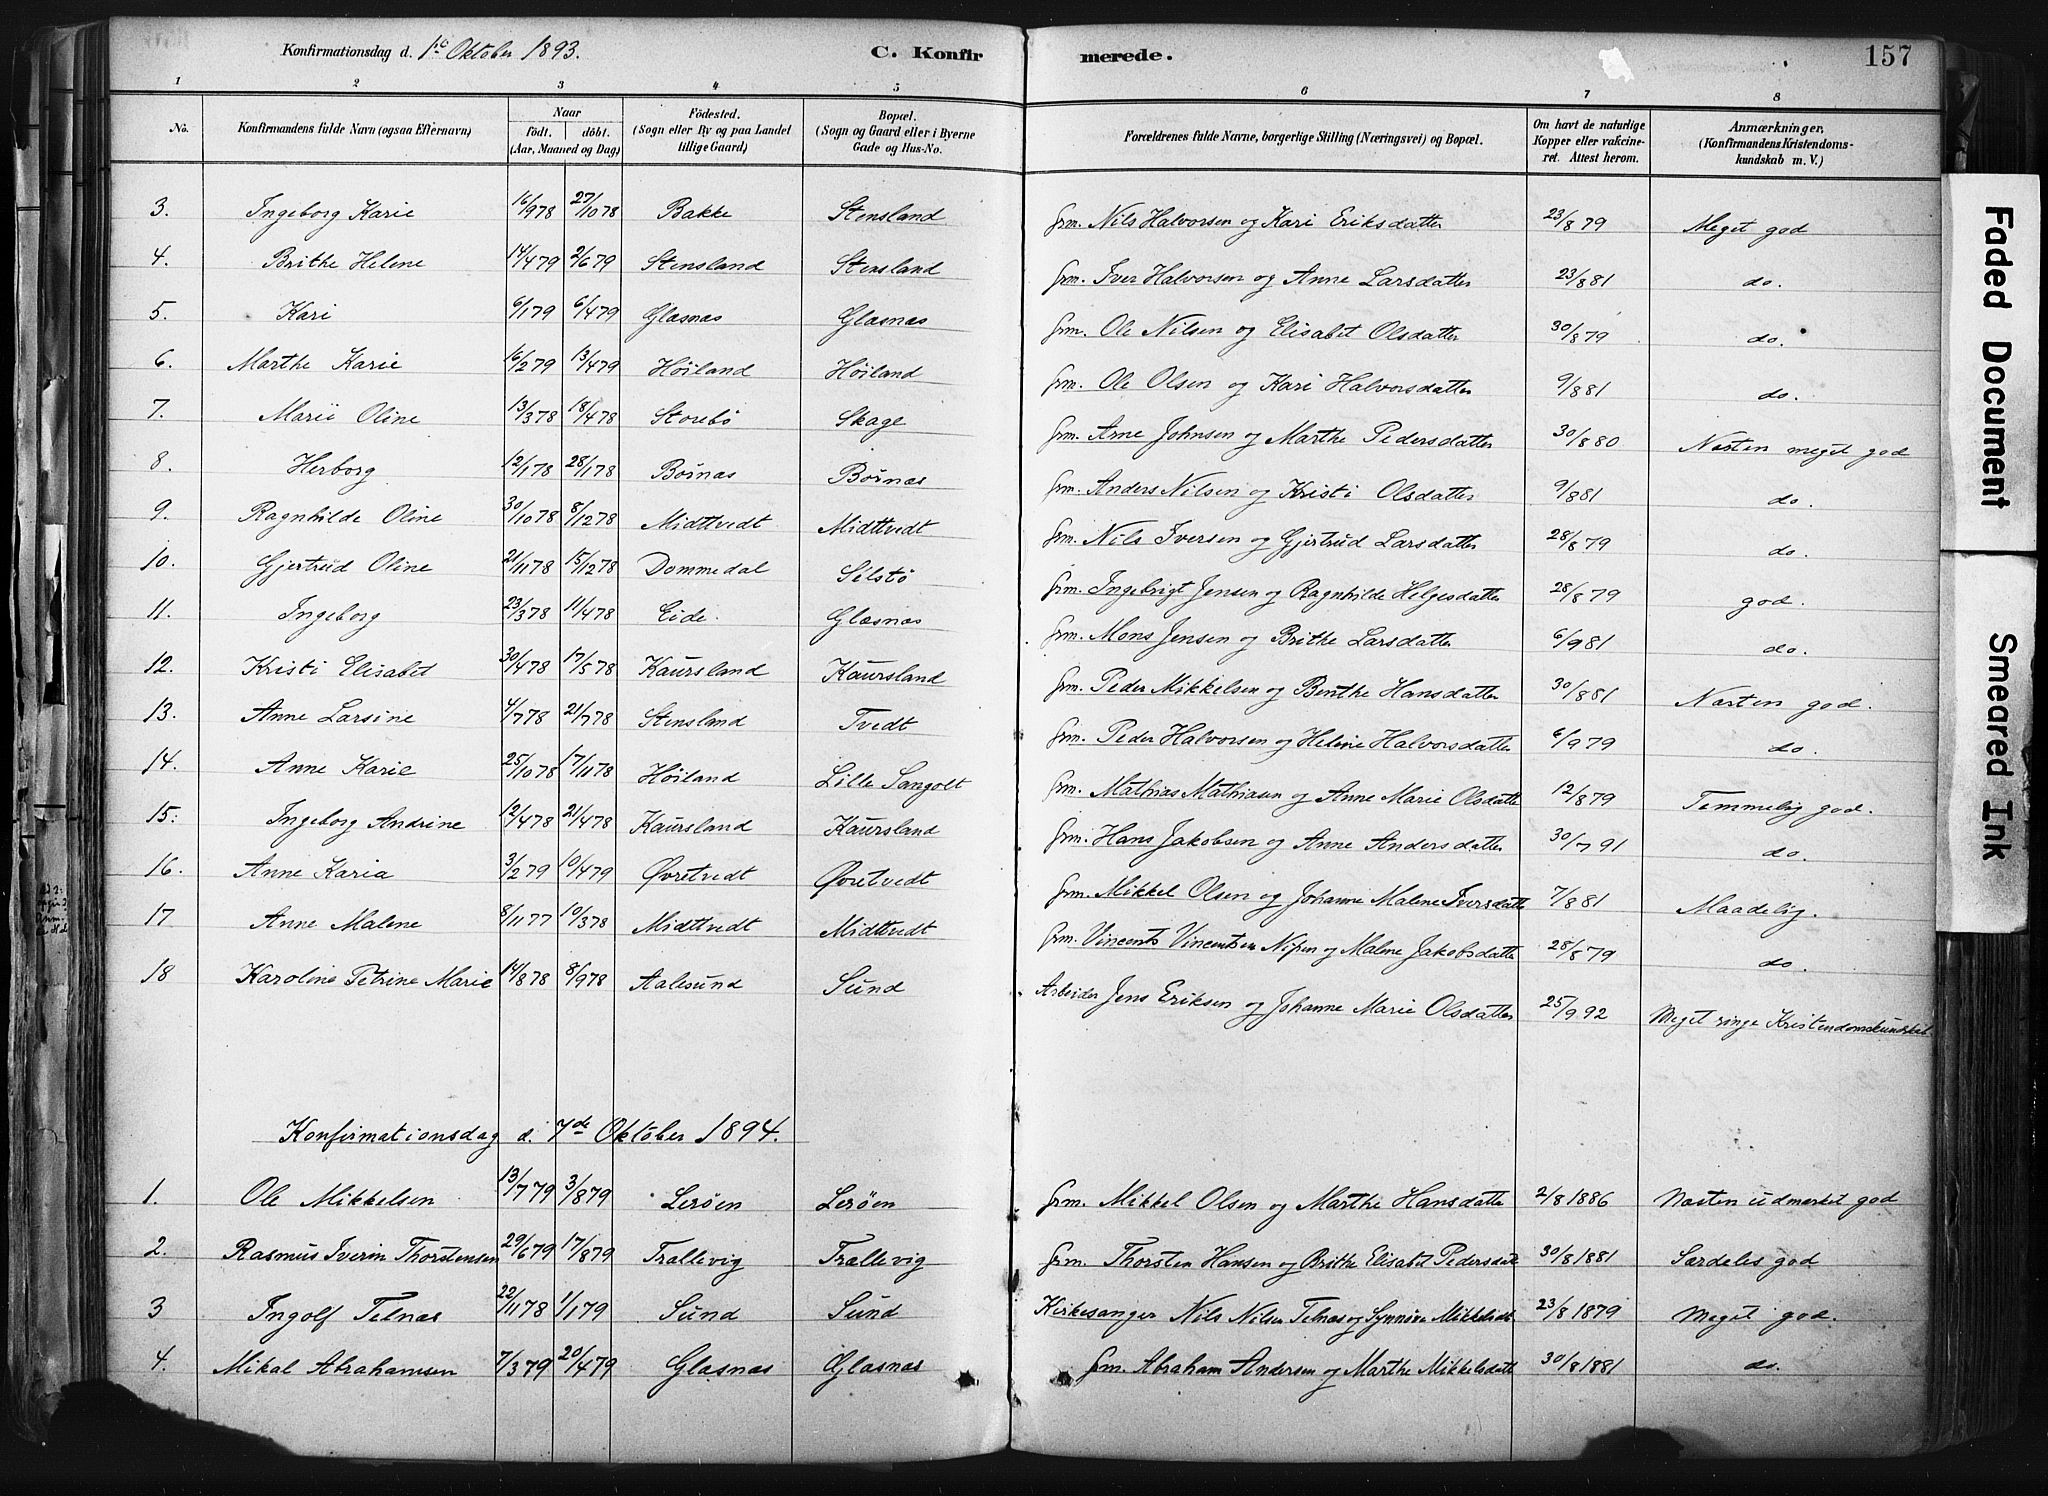 Konfirmationsdag d. 1ste Oktober 1893. C. Konfirmerede. 157
1 2 3 4 5 6 7 8
No. Konfirmandens fulde Navn (ogsaa Efternavn) Naar født. døbt. (Aar, Maaned og Dag) Fødested. (Sogn eller By og paa Landet tillige Gaard) Bopæl. (Sogn og Gaard eller i Byerne Gade og Hus-No. Forældrenes fulde Navne, borgerlige Stilling (Næringsvei) og Bopæl. Om havt de naturlige Kopper eller vakcineret. Attest herom. Anmærkninger, (Konfirmandens Kristendomskundskab m. V.)
3. Ingeborg Karie 16/9 78 27/10 78 Bakke Stensland Grm. Nils Halvorsen og Kari Eriksdatter 23/8 79 Meget god
4. Brithe Helene 14/4 79 2/6 79 Stensland Stensland Grm. Iver Halvorsen og Anne Larsdatter 23/8 81 do.
5. Kari 6/1 79 6/4 79 Glæsnæs Glæsnæs Grm. Ole Nilsen og Elisabet Olsdatter 30/8 79 do.
6. Marthe Karie 16/2 79 13/4 79 Høiland Høiland Grm. Ole Olsen og Kari Halvorsdatter 9/8 81 do.
7. Marie Oline 13/3 78 18/4 78 Storebø Skage Grm. Arne Johnsen og Marthe Pedersdatter 30/8 80 Næsten meget god
8. Herborg 12/1 78 28/1 78 Børnæs Børnæs Grm. Anders Nilsen og Kristi Olsdatter 9/8 81 do.
9. Ragnhilde Oline 30/10 78 8/12 78 Midttvedt Midttvedt Grm. Nils Iversen og Gjertrud Larsdatter 28/8 79 do.
10. Gjertrud Oline 21/11 78 15/12 78 Dommedal Selstø Grm. Ingebrigt Jensen og Ragnhilde Helgesdatter 28/8 79 god.
11. Ingeborg 23/3 78 11/4 78 Eide. Glæsnæs Grm. Mons Jensen og Brithe Larsdatter 6/9 81 do.
12. Kristi Elisabet 30/4 78 17/5 78 Kaursland Kaursland Grm. Peder Mikkelsen og Benthe Hansdatter 30/8 81 Næsten god.
13. Anne Larsine 4/7 78 21/7 78 Stensland Tvedt Grm. Peder Halvorsen og Helene Halvorsdatter 6/9 79 do.
14. Anne Karie 25/10 78 17/11 78 Høiland Lille Sangolt Grm. Mathias Mathiasen og Anne Marie Olsdatter 12/8 79 Temmelig god.
15. Ingeborg Andrine 12/4 78 21/4 78 Kaursland Kaursland Grm. Hans Jakobsen og Anne Andersdatter 30/7 91 do.
16. Anne Karia 3/2 79 10/4 79 Øvretvedt Øvretvedt Grm. Mikkel Olsen og Johanne Malene Iversdatter 7/8 81 Maadelig.
17 Anne Malene 8/11 77 10/3 78 Midttvedt Midttvedt Grm. Vincents Vincentsen Nipen og Malene Jakobsdatter 28/8 79 do.
18 Karoline Petrine Marie 14/8 78 8/9 78 Aalesund Sund Arbeider Jens Eriksen og Johanne Marie Olsdatter 25/9 92 Meget ringe Kristendomskundskab
Konfirmationsdag d. 7de Oktober 1894.
1. Ole Mikkelsen 13/7 79 3/8 79 Lerøen Lerøen Grm. Mikkel Olsen og Marthe Hansdatter 2/8 1886 Næsten udmærket god
2. Rasmus Iverin Thorstensen 29/6 79 17/8 79 Trællevig Trællevig Grm. Thorsten Hansen og Brithe Elisabet Pedersdatt 30/8 1881 Særdeles god
3 Ingolf Telnæs 22/11 78 1/1 79 Sund Sund Kirkesanger Nils Nilsen Telnæs og Synnøve Mikkelsdt 23/8 1879 Meget god.
4. Mikal Abrahamsen 7/3 79 20/4 79 Glæsnæs Glæsnæs Grm. Abraham Andersen og Marthe Mikkelsdatt 30/8 1881 do.
Faded Document
Smeared Ink